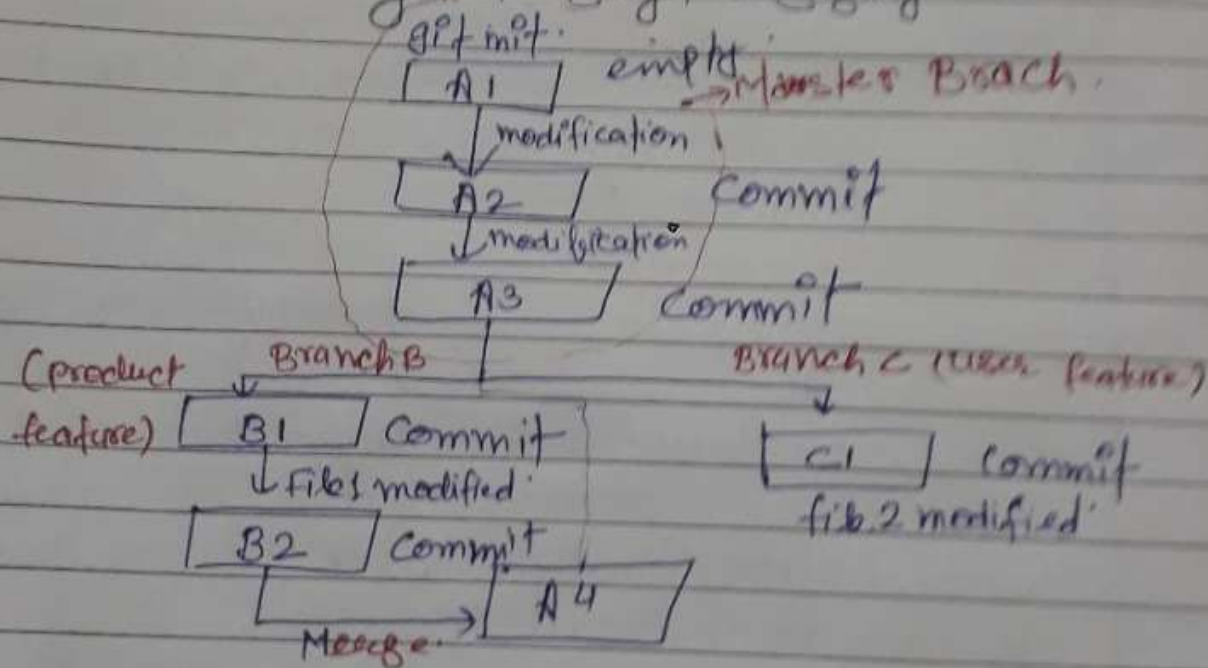 git init.
A1 empty
→Master Brach.
modification
A2 Commit
modification
A3 Commit
(product Branch B Branch C (user feature)
feature) B1 Commit C1 Commit
File1 modified file 2 modified
B2 Commit
A4
Merge.